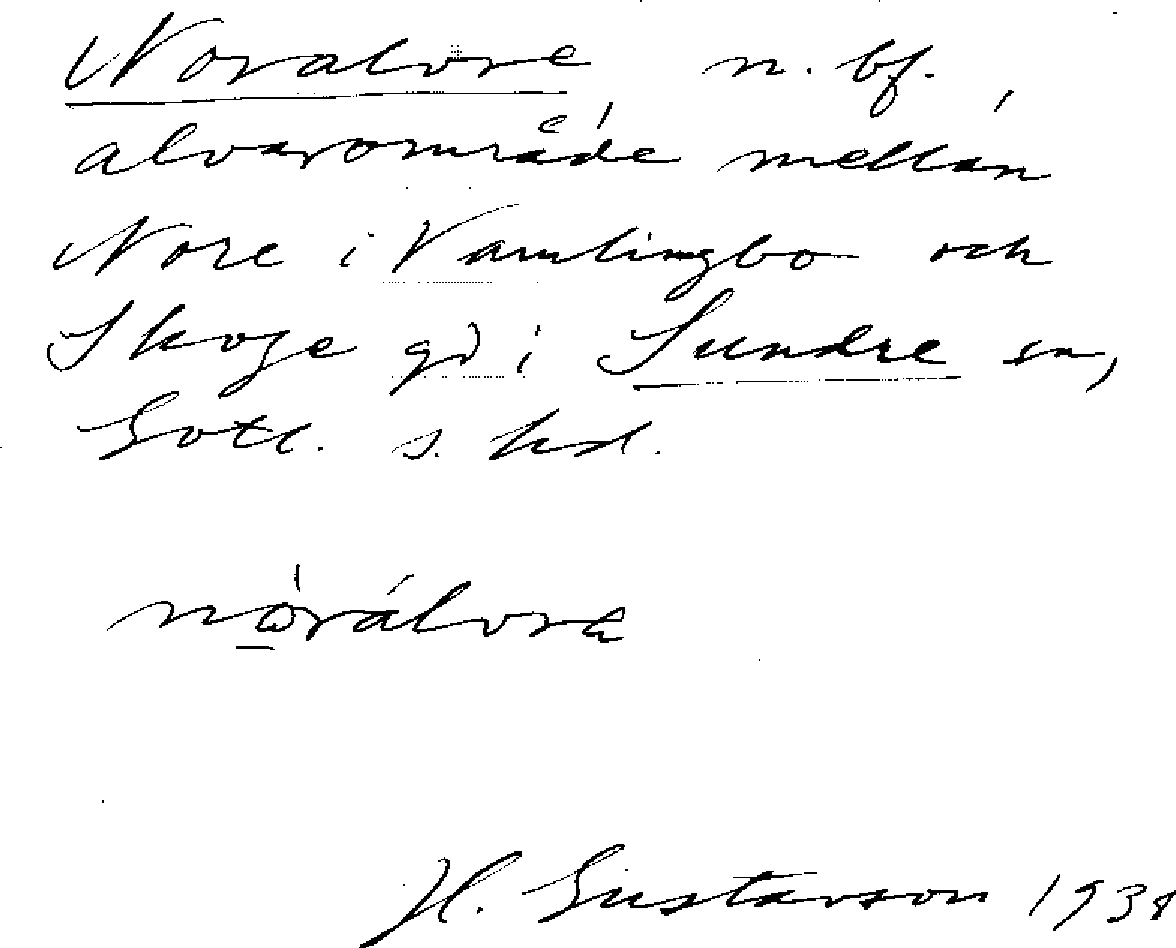 Noralvre n. bf.
alvarområde mellan
Nore i Vamlingbo och
Skoge gd i Sundre sn,
Gotl. s. hd.
H. Gustavson